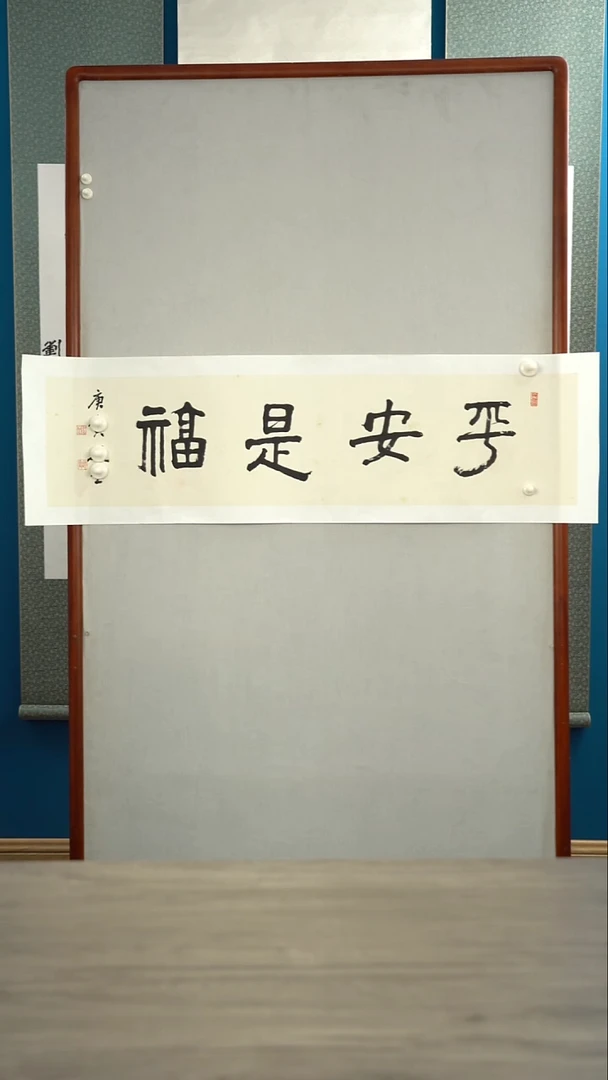 平安是福
庚
劉